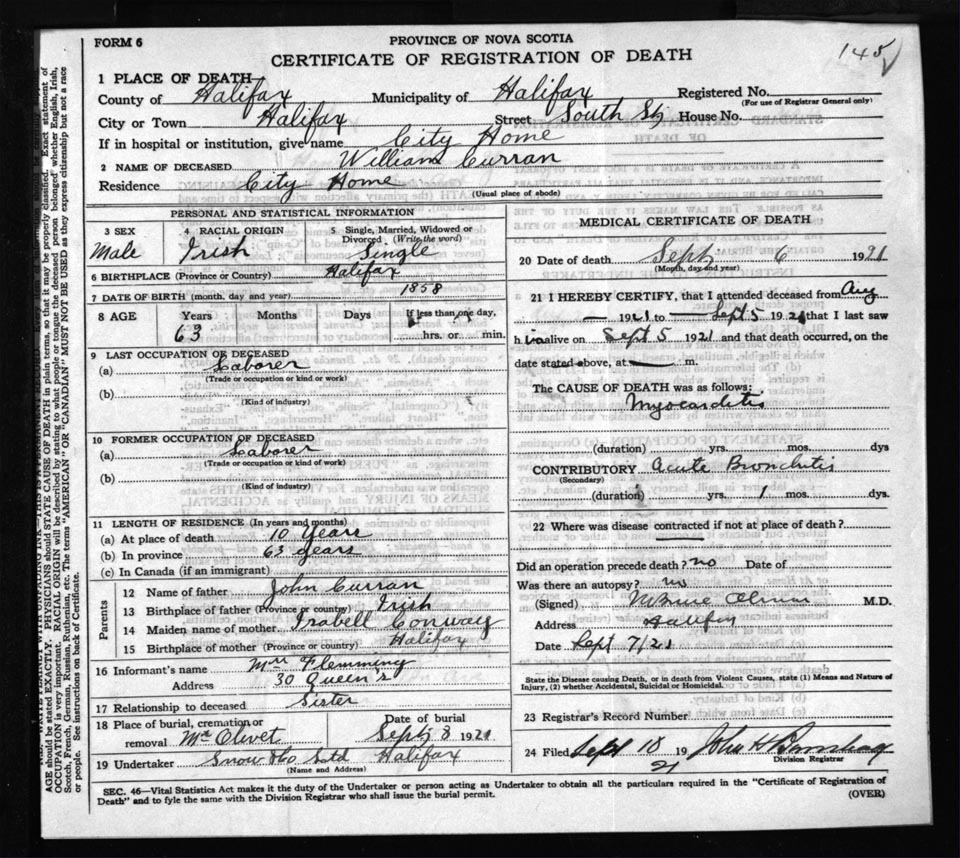 FORM 6
PROVINCE OF NOVA SCOTIA
CERTIFICATE OF REGISTRATION OF DEATH
145
1 PLACE OF DEATH
County of Halifax Municipality of Halifax Registered No.
(For use of Registrar General only)
City or Town Halifax Street South St, House No.
If in hospital or institution, give name City Home
2 NAME OF DECEASED William Curran
Residence City Home
(Usual place of abode)
PERSONAL AND STATISTICAL INFORMATION
3 SEX 4 RACIAL ORIGIN 5 Single, Married, Widowed or Divorced (Write the word)
Male Irish Single
6 BIRTHPLACE (Province or Country) Halifax
7 DATE OF BIRTH (month, day and year) 1858
8 AGE Years Months Days If less than one day,
63 hrs. or min.
9 LAST OCCUPATION OF DECEASED
(a) Laborer
(Trade or occupation or kind or work)
(b)
(Kind of industry)
10 FORMER OCCUPATION OF DECEASED
(a) Laborer
(Trade or occupation or kind or work)
(b)
(Kind of industry)
11 LENGTH OF RESIDENCE (In years and months)
(a) At place of death 10 Years
(b) In province 63 years
(c) In Canada (if an immigrant)
Parents
12 Name of father John Curran
13 Birthplace of father (Province or country) Irish
14 Maiden name of mother Isabell Conway
15 Birthplace of mother (Province or country) Halifax
16 Informant's name Mrs Flemming
Address 30 Queen's
17 Relationship to deceased Sister
18 Place of burial, cremation or removal Mt Olivet Date of burial Sept 8 1921
19 Undertaker Snow & Co Ltd Halifax
(Name and Address)
MEDICAL CERTIFICATE OF DEATH
20 Date of death Sept 6 1921
(Month, day and year)
21 I HEREBY CERTIFY, that I attended deceased from Aug
— 1921 to — Sept 5 1921 that I last saw
h im alive on Sept 5 1921 and that death occurred, on the
date stated above, at — m.
The CAUSE OF DEATH was as follows:
Myocarditis
(duration) yrs. mos. dys
CONTRIBUTORY Acute Bronchitis
(Secondary)
(duration) yrs. 1 mos. dys.
22 Where was disease contracted if not at place of death?
—
Did an operation precede death? no Date of
Was there an autopsy? no
(Signed) M.D.
Address Halifax
Date Sept 7/21
State the Disease causing Death, or in death from Violent Causes, state (1) Means and Nature of
Injury, (2) whether Accidental, Suicidal or Homicidal.
23 Registrar's Record Number
24 Filed Sept 10 19 21 John H
Division Registrar
SEC. 46—Vital Statistics Act makes it the duty of the Undertaker or person acting as Undertaker to obtain all the particulars required in the "Certificate of Registration of
Death" and to fyle the same with the Division Registrar who shall issue the burial permit.
(OVER)
WRITE PLAINLY WITH UNFADING INK—THIS IS A PERMANENT RECORD.
AGE should be stated EXACTLY. PHYSICIANS should STATE CAUSE OF DEATH in plain terms, so that it may be properly classified. Exact statement of
OCCUPATION is very important. RACIAL ORIGIN will be described by stating to what people or tongue the deceased person belonged whether English, Irish,
Scotch, French, German, Russian, Ruthenian, etc. The terms "AMERICAN" OR "CANADIAN" MUST NOT BE USED as they express citizenship but not a race
or people. See instructions on back of Certificate.